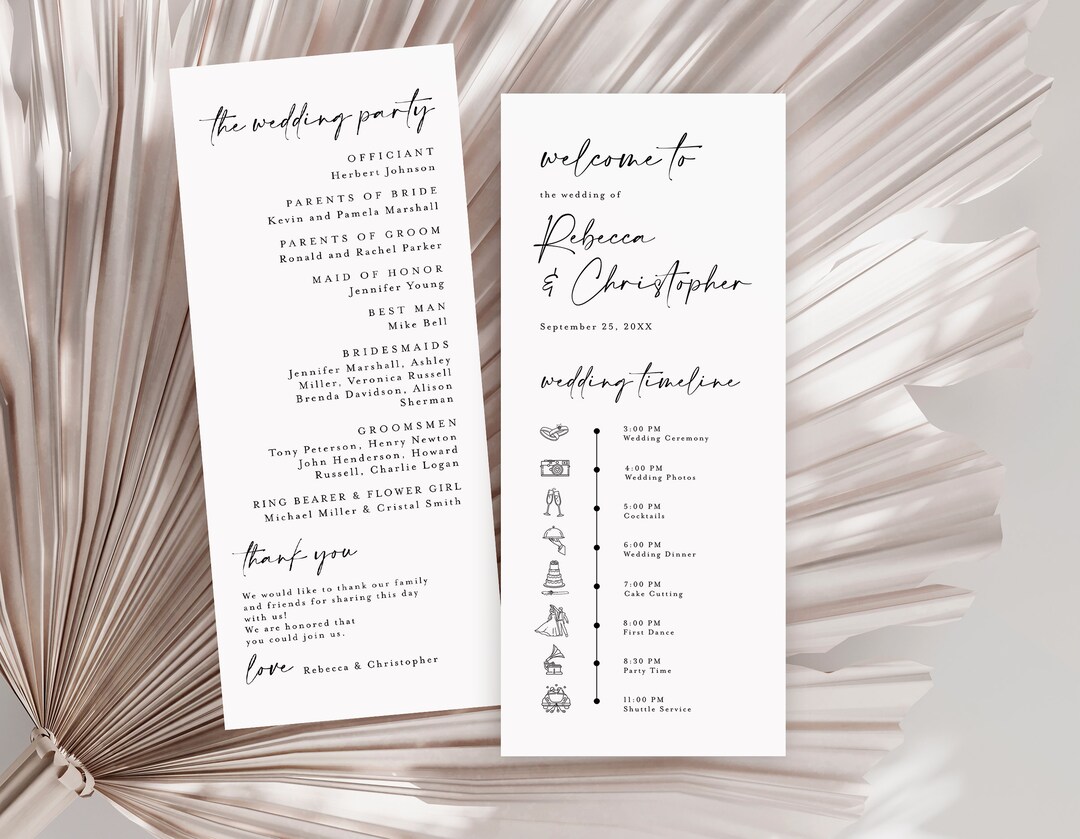 the wedding party
OFFICIANT
Herbert Johnson
PARENTS OF BRIDE
Kevin and Pamela Marshall
PARENTS OF GROOM
Ronald and Rachel Parker
MAID OF HONOR
Jennifer Young
BEST MAN
Mike Bell
BRIDESMAIDS
Jennifer Marshall, Ashley
Miller, Veronica Russell
Brenda Davidson, Alison
Sherman
GROOMSMEN
Tony Peterson, Henry Newton
John Henderson, Howard
Russell, Charlie Logan
RING BEARER & FLOWER GIRL
Michael Miller & Cristal Smith
thank you
We would like to thank our family
and friends for sharing this day
with us!
We are honored that
you could join us.
love Rebecca & Christopher
welcome to
the wedding of
Rebecca
& Christopher
September 25, 20XX
wedding timeline
3:00 PM
Wedding Ceremony
4:00 PM
Wedding Photos
5:00 PM
Cocktails
6:00 PM
Wedding Dinner
7:00 PM
Cake Cutting
8:00 PM
First Dance
8:30 PM
Party Time
11:00 PM
Shuttle Service